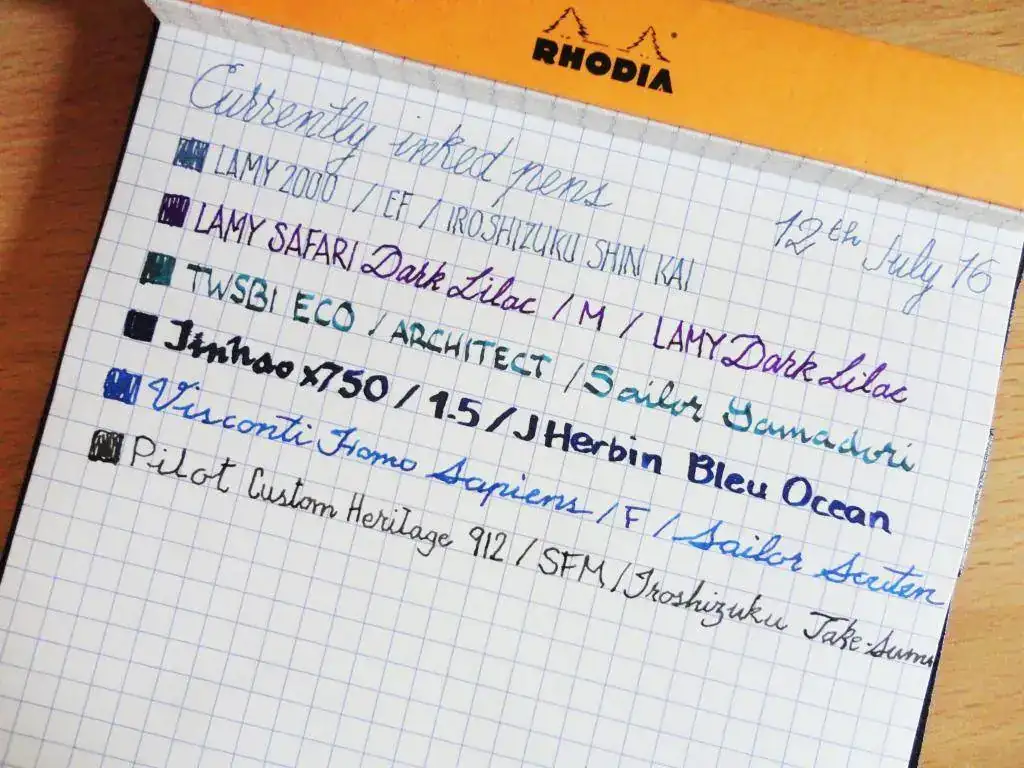 RHODIA
Currently inked pens
12th July 16
LAMY 2000 / EF / IROSHIZUKU SHIN KAI
LAMY SAFARI Dark Lilac / M / LAMY Dark Lilac
TWSBI ECO / ARCHITECT / Sailor Yamadori
Jinhao x750 / 1.5 / J Herbin Bleu Ocean
Visconti Homo Sapiens / F / Sailor Souten
Pilot Custom Heritage 912 / SFM / Iroshizuku Take-Sumi